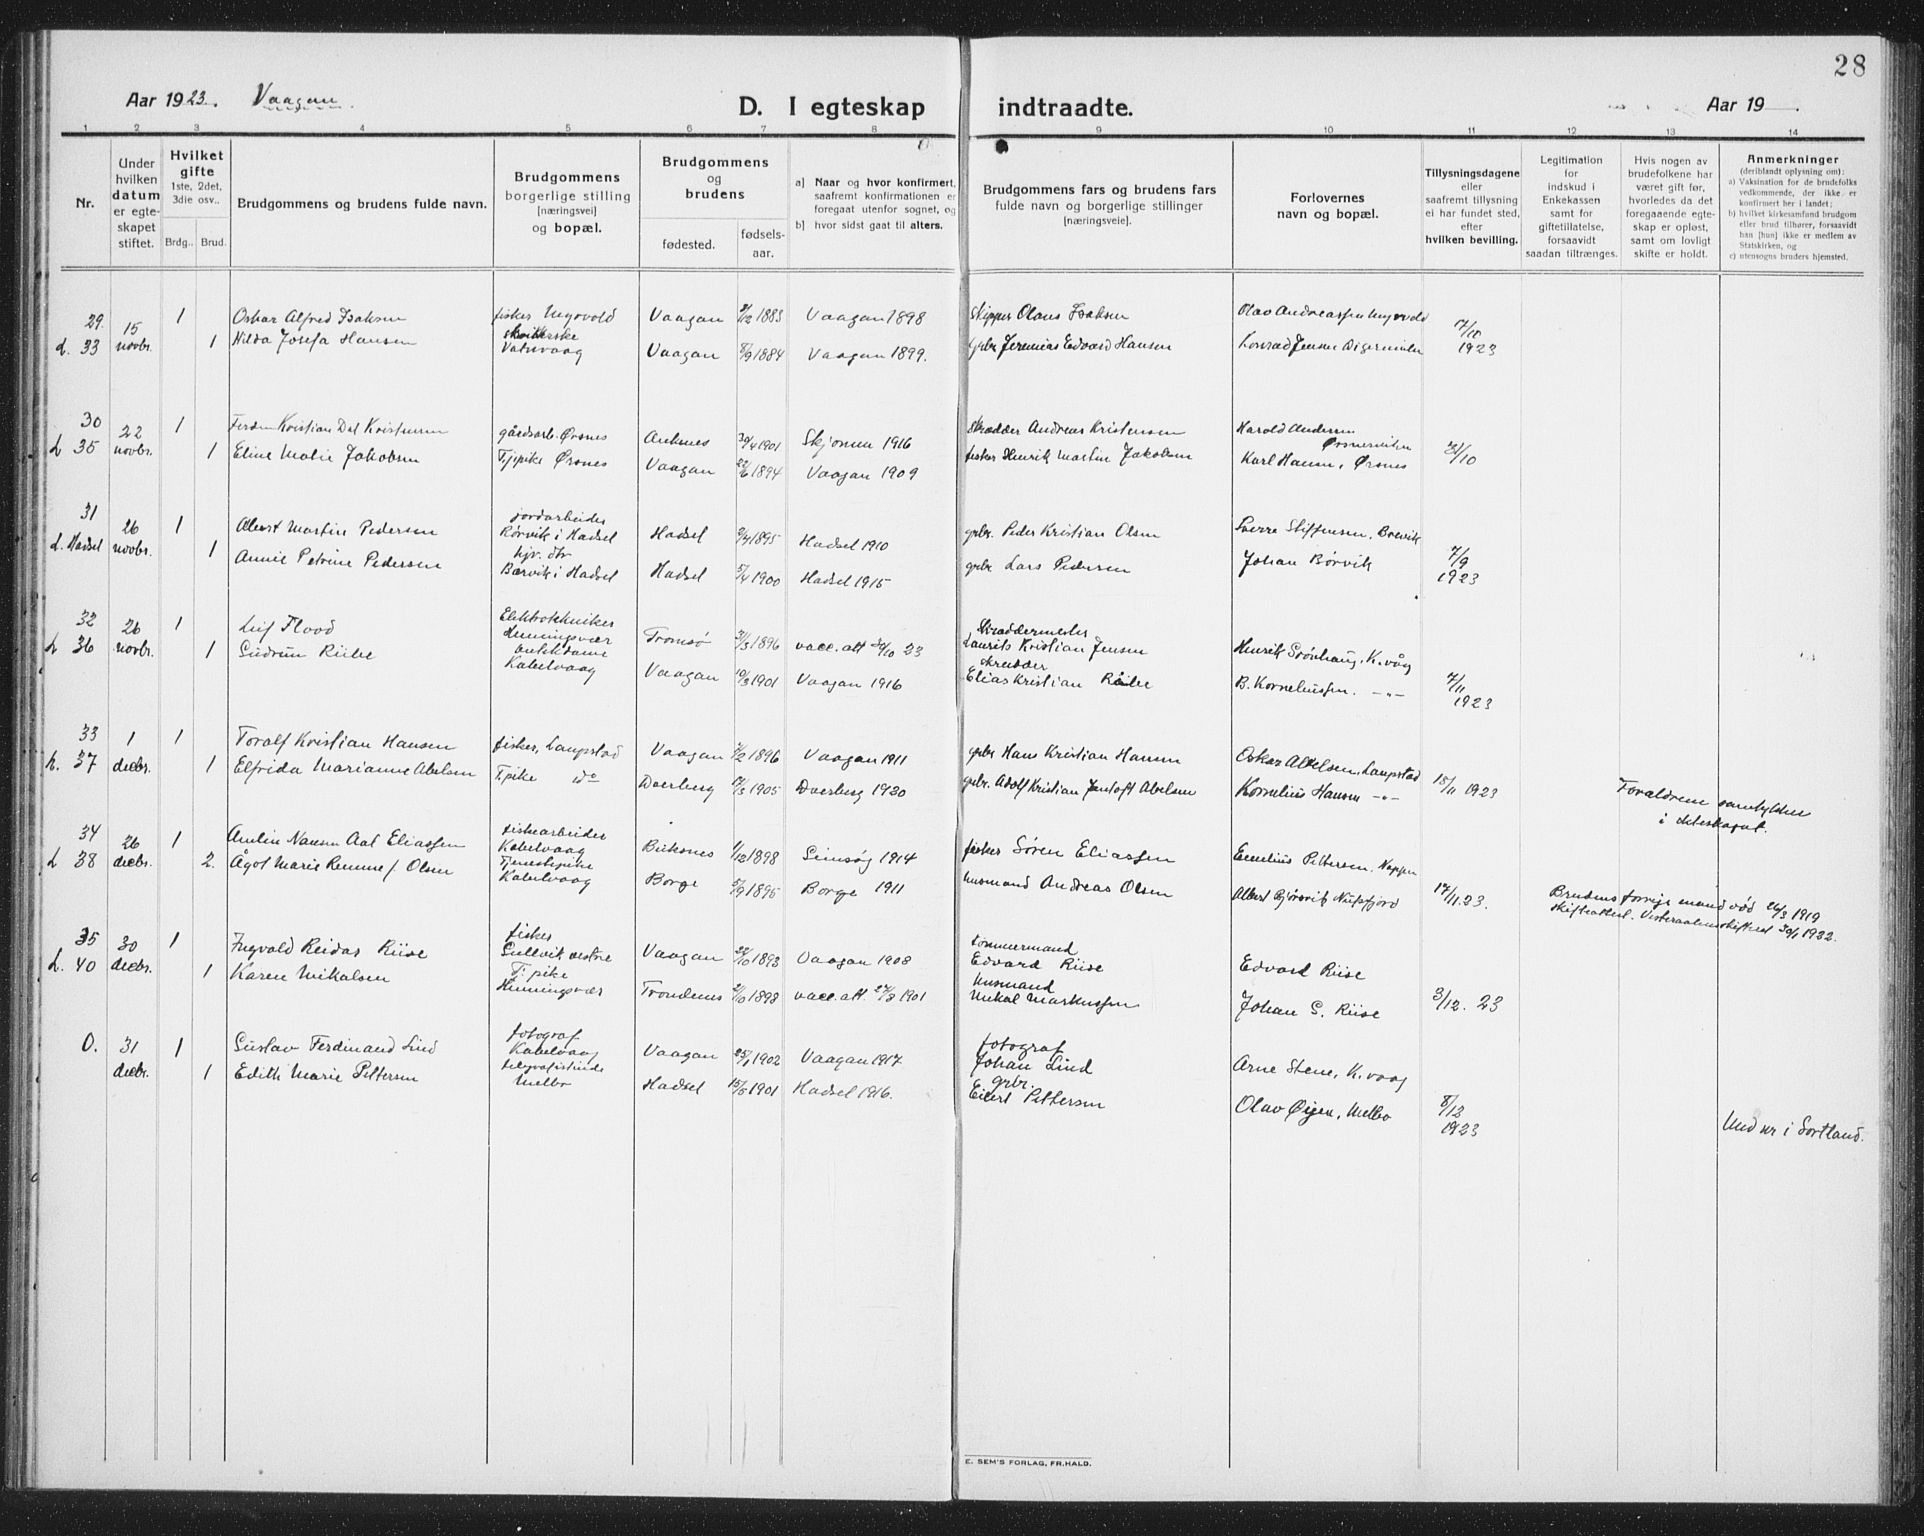 28
Aar 1923. Vaagan
D. I egteskap indtraadte.
Aar 19
1 2 3 4 5 6 7 8 9 10 11 12 13 14
Nr.
Under hvilken datum er egteskapet stiftet.
Hvilket gifte 1ste, 2det, 3die osv..
Brdg.. Brud.
Brudgommens og brudens fulde navn.
Brudgommens borgerlige stilling [næringsvei] og bopæl.
Brudgommens og brudens
fødested.
fødsels-aar.
a] Naar og hvor konfirmert, saafremt konfirmationen er foregaat utenfor sognet, og
b] hvor sidst gaat til alters.
Brudgommens fars og brudens fars fulde navn og borgerlige stillinger [næringsveie].
Forlovernes navn og bopæl.
Tillysningsdagene eller saafremt tillysning ei har fundet sted, efter hvilken bevilling.
Legitimation for indskud i Enkekassen samt for giftetillatelse, forsaavidt saadan tiltrænges.
Hvis nogen av brudefolkene har været gift før, hvorledes da det foregaaende egteskap er opløst, samt om lovligt skifte er holdt.
Anmerkninger (deriblandt oplysning om):
a) Vaksination for de brudefolks vedkommende, der ikke er konfirmert her i landet;
b) hvilket kirkesamfund brudgom eller brud tilhører, forsaavidt han [hun] ikke er medlem av Statskirken, og
c) utensogns bruders hjemsted.
29. 15 1 Oskar Alfred Isaksen fisker Vaagan 1883 Vaagan 1898 Skipper Olaus Isaksen
L. 33 novbr. 1 Hilda Josefa Hansen Vatsvaag Vaagan 8/9 1884 Vaagan 1899. grbr. Jeremias Edvard Hansen Konrad Jensen 7/10 1923
30 22 1 Kristian Dal Kristensen gårdsarb. Ørsnes 1901 1916 skrædder Andreas Kristensen Harald Andersen
L 35 novbr. 1 Eline Malie Jakobsen Tj.pike Ørsnes Vaagan 1894 Vaagan 1909 fisker Henrik Martin Jakobsen Karl Hansen, Ørsnes
31 26 1 Albert Martin Pedersen jordarbeider Rørvik i Hadsel Hadsel 1895 Hadsel 1910 grbr. Peder Kristian Olsen Sverre Steffensen, Brevik
L. Hadsel novbr. 1 Annie Petrine Pedersen Børvik i Hadsel Hadsel 5/4 1900 Hadsel 1915 grbr. Lars Pedersen Johan Børvik 7/9 1923
32 26 1 Leif Flood Elektrotekniker Henningsvær Tromsø 1896 vacc. att 30/10 23 Skræddermester Laurits Kristian Jensen
L 36 novbr. 1 Gudrun Riibe Kabelvaag Vaagan 1901 Vaagan 1916 skrædder Elias Kristian Riibe B. Korneliussen. -"- 7/11 1923
33 1 1 Toralf Kristian Hansen fisker, Laupstad Vaagan 1896 Vaagan 1911 grbr. Hans Kristian Hansen Oskar Abelsen, Laupstad
h. 37 decbr. 1 Elfrida Marianne Abelsen T.pike do Dverberg 1905 Dverberg 1920 grbr. Adolf Kristian Jentoft Abelsen Kornelius Hansen -"- 18/11 1923 Forældrene samtykker i ekteskapet.
34 26 1 Nansen Eliassen fiskearbeider Kabelvaag Buksnes 1/12 1898 1914 fisker Søren Eliassen Emelius Pettersen, Nappen
L 38 decbr. 2. Ågot Marie Remme f. Olsen Tjenestepike Kabelvaag Borge 1895 Borge 1911 Husmand Andreas Olsen Albert Nusfjord 17/11.23. Brudens forrige mand død 1919 1922.
35 30 1 Ingvald Reidar Riise fisker Gullvik Vaagan 22/10 1893 Vaagan 1908 tømmermand Edvard Riise Edvard Riise
L. 40 decbr. 1 Karen Mikalsen T.pike Henningsvær Trondenes 1898 vacc. att. 1901 Husmand Mikal Markussen Johan S. Riise 3/12. 23
0. 31 1 Gustav Ferdinand Lind fotograf Kabelvaag Vaagan 25/1 1902 Vaagan 1917 fotograf Johan Lind Arne Stene, K.vaag
decbr. 1 Edith Marie Pettersen telegrafistinde Melbo Hadsel 1901 Hadsel 1916. grbr. Eilert Pettersen Olav Øien, Melbo 8/12 1923 Und nr i Sortland.
E. SEM'S FORLAG, FR.HALD.